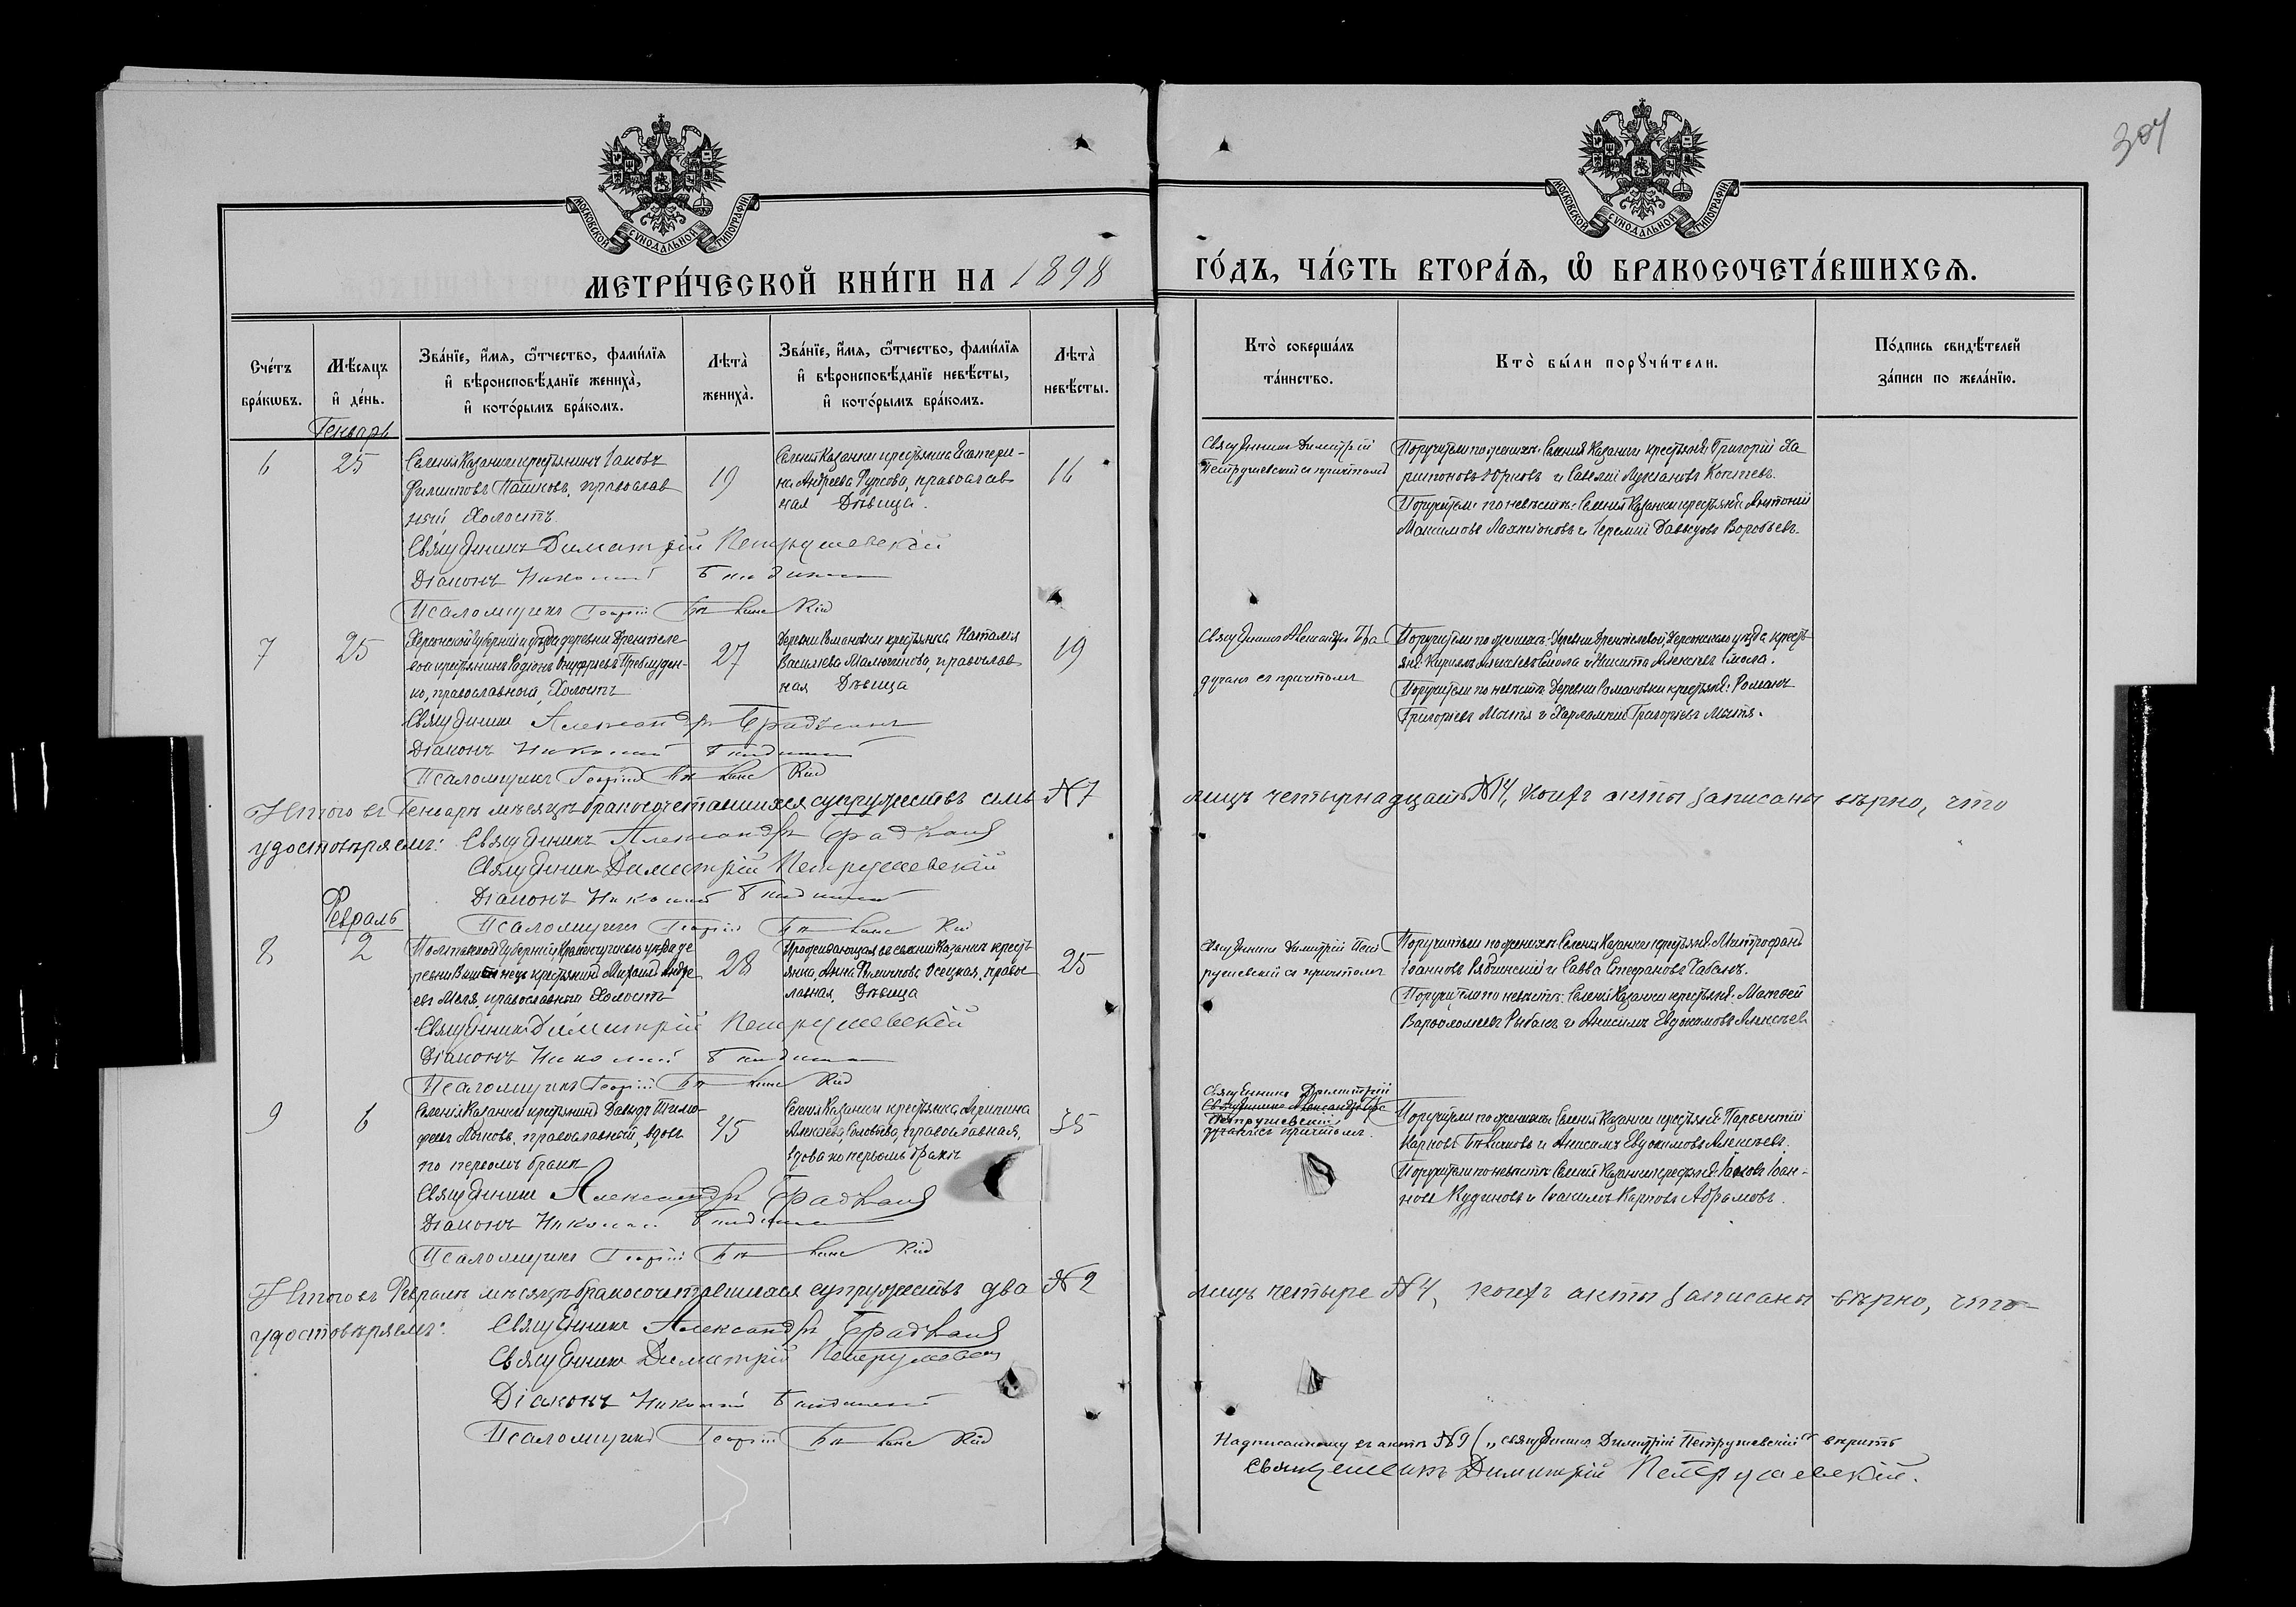 304
МОСКОВСКОЙ СѴНОДАЛЬНОЙ ТИПОГРАФІИ
МОСКОВСКОЙ СѴНОДАЛЬНОЙ ТИПОГРАФІИ
МЕТРИ́ЧЕСКОЙ КНИ́ГИ НА 1898
ГО́ДЪ, ЧА́СТЬ ВТОРА́Ѧ, Ѽ БРАКОСОЧЕТА́ВШИХСѦ.
Сче́тъ бра́кѡвъ.
Мѣ́сяцъ и҆ де́нь.
Зва́нїе, и҆́мѧ, ѻ҆́тчество, фами́лїѧ
и҆ вѣроисповѣ́данїе жениха̀,
и҆ кото́рымъ бра́комъ.
Лѣта̀ жениха̀.
Зва́нїе, и҆́мѧ, ѻ҆́тчество, фами́лїѧ
и҆ вѣроисповѣ́данїе невѣ́сты,
и҆ кото́рымъ бра́комъ.
Лѣта̀ невѣ́сты.
Кто̀ соверша́лъ та́инство.
Кто̀ бы́ли порꙋчи́тели.
По́дпись свидѣ́телей
за́писи по жела́нїю.
Генварь
6
25
Селенія Казанки крестьянинъ Іаковъ
Филиповъ Пашковъ, православ
ный Холостъ
19
Селенія Казанки крестьянка Екатери-
на Андреева Фурсова, православ
ная Дѣвица.
16
Священникъ Димитрій
Петрушевскій съ причтомъ
Поручители по женихѣ: Селенія Казанки крестьяне: Григорій Ха
ритоновъ Юрковъ и Савелій Лукіановъ Коптевъ.
Поручители по невѣстѣ: Селенія Казанки крестьяне: Антоній
Максимовъ Лактіоновъ и Іеремій Давидовъ Воробьевъ.
Священникъ Димитрій Петрушевскій
Діаконъ Николай
Псаломщикъ Георгій
7
25
Херсонской губерніи и уѣзда деревни Дрентеле-
вой крестьянинъ Родіонъ Онуфріевъ Приблуден-
ко, православный, Холостъ
27
Деревни Романовки крестьянка Наталія
Василіева Малючинова, православ
ная Дѣвица
19
Священникъ Александръ Бра
дучанъ съ причтомъ
Поручители по женихѣ: Деревни Дрентелевой, Херсонскаго уѣзда кресть
яне: Кириллъ Алексѣевъ Смола и Никита Алексѣевъ Смола.
Поручители по невѣстѣ: Деревни Романовки крестьяне: Романъ
Григорьевъ Мытя и Харлампій Григорьевъ Мытя.
Священникъ Александръ
Діаконъ Николай
Псаломщикъ Георгій
Итого въ Генварѣ мѣсяцѣ бракосочетавшихся супружествъ семь №7
лицъ четырнадцать №14, коихъ акты записаны вѣрно, что
удостовѣряемъ: Священникъ Александръ
Священникъ Димитрій Петрушевскій
Діаконъ Николай
Псаломщикъ Георгій
Февраль
8
2
Полтавской губерніи, Кременчугскаго уѣзда де
ревни крестьянинъ Михаилъ Андре
евъ Мель, православный Холостъ
28
Проживающая въ селеніи Казанкѣ кресть
янка, Анна Филипова Осецкая, правос
лавная, Дѣвица
25
Священникъ Димитрій Пет
рушевскій съ причтомъ
Поручители по женихѣ: Селенія Казанки крестьяне: Митрофанъ
Іоанновъ Рябчинскій и Савва Стефановъ Чабанъ.
Поручители по невѣстѣ: Селенія Казанки крестьяне: Матвей
Варѳоломеевъ Рыбакъ и Анисимъ Евдокимовъ Алексѣевъ
Священникъ Димитрій Петрушевскій
Діаконъ Николай
Псаломщикъ Георгій
9
6
Селенія Казанки крестьянинъ Давидъ Тимо-
феевъ Лочковъ, православный, вдовъ
по первомъ бракѣ
45
Селенія Казанки крестьянка Агрипина
Алексѣева Соловьева, православная,
вдова по первомъ бракѣ
35
Священникъ Димитрій
Священникъ Александръ Бра
Петрушевскій
дучанъ съ причтомъ.
Поручители по женихѣ: Селенія Казанки крестьяне: Парѳентій
Карповъ и Анисимъ Евдокимовъ Алексѣевъ.
Поручители по невѣстѣ: Селенія Казанки крестьяне: Іаковъ Іоан-
новъ Кудиновъ и Іоакимъ Карповъ Абрамовъ.
Священникъ Александръ
Діаконъ Николай
Псаломщикъ Георгій
Итого въ Февралѣ мѣсяцѣ бракосочетавшихся супружествъ два №2
лицъ четыре №4, коихъ акты записаны вѣрно, что
удостовѣряемъ: Священникъ Александръ
Священникъ Димитрій Петрушевскій
Діаконъ Николай
Псаломщикъ Георгій
Надписанному въ актѣ №9 („священникъ Димитрій Петрушевскій“ вѣрить
Священникъ Димитрій Петрушевскій.